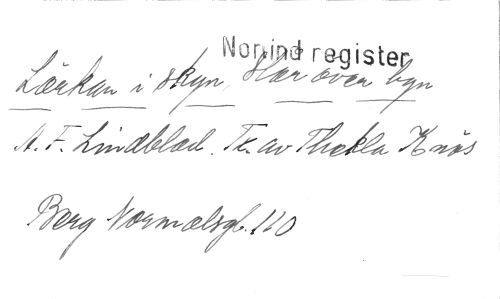 Nonind register
Lärkan i skyn, Där över byn
A. F. Lindblad. Tx. av Thekla Knös
Berg Normalsgb. 110